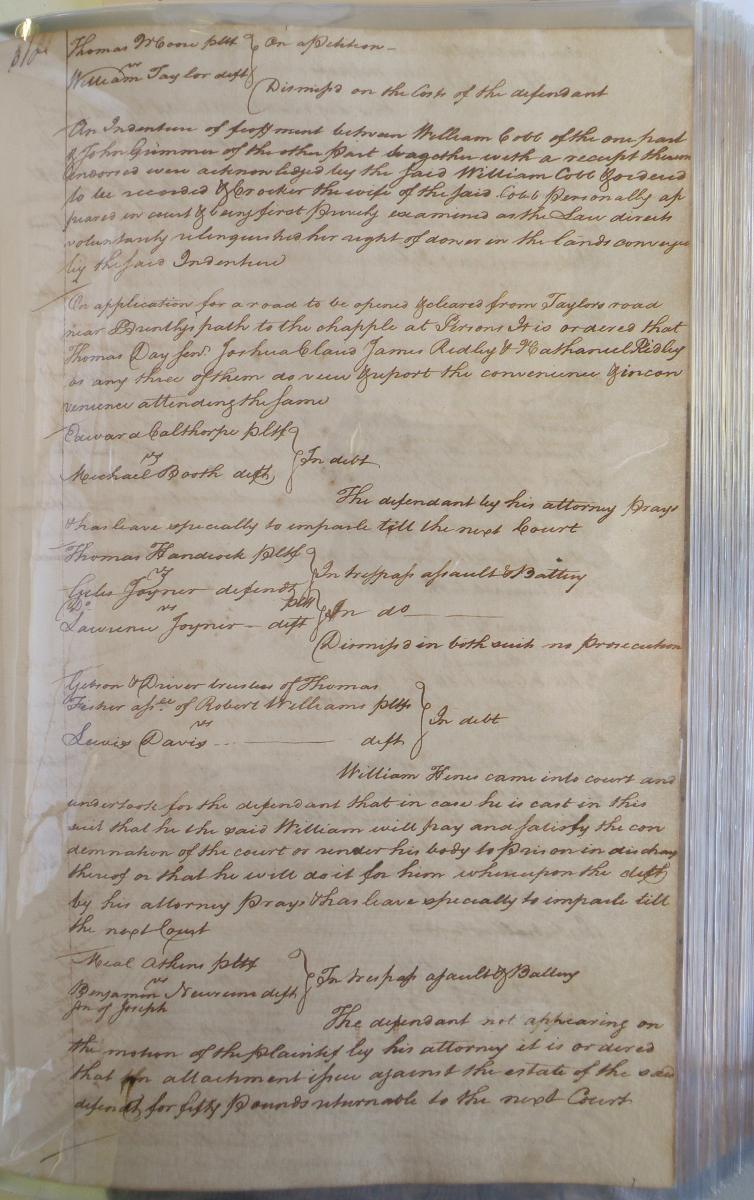 Thomas Moore pltf } On a petition
vs
William Taylor deft
Dismissd on the Costs of the defendant
An Indenture of feoffment between William Cobb of the one part
& John Grimmer of the other Part togather with a receipt thereon
Endorsed were acknowledged by the said William Cobb & ordered
to be recorded & Crocker the wife of the said Cobb Personally ap
peared in court & being first Privily examined as the Law directs
voluntarily relinquished her right of dower in the lands conveye
by the said Indenture
On application for a road to be opened & cleared from Taylors road
near path to the chapple at Persons It is ordered that
Thomas Day Senr. Joshua Claud James Ridley & Nathaniel Ridley
or any three of them do view & report the convenience & incon
venience attending the same
Edward Calthorpe pltf
vs
Michael Booth deft } In debt
The defendant by his attorney Prays
& has leave specially to imparle till the next Court
Thomas Handcock pltf
vs
Giles Joyner defendt } In trespass assault & Battery
Do. pltf
vs
Lawrence Joyner deft } In do
Dismissd in both suits no Prosecution
Gibson & Driver trustees of Thomas
Fisher assee. of Robert Williams pltfs
vs
Lewis Davis deft } In debt
William Hines came into court and
undertook for the defendant that in case he is cast in this
suit that he the said William will pay and satisfy the con
demnation of the court or render his body to Prison in discharg
thereof or that he will do it for him whereupon the deft
by his attorney Prays & has leave specially to imparle till
the next Court
Meal Atkins pltf
vs
Benjamin Newsum deft } In trespass assault & Battery
son of Joseph
The defendant not appearing on
the motion of the plaintif by his attorney it is ordered
that an attachment issue against the estate of the said
defendt for fifty Pounds returnable to the next Court